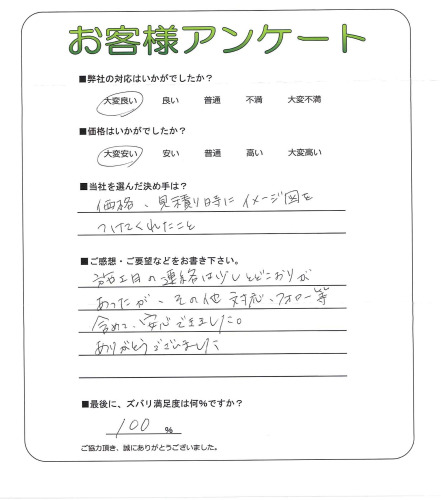 お客様アンケート
■弊社の対応はいかがでしたか？
大変良い 良い 普通 不満 大変不満
■価格はいかがでしたか？
大変安い 安い 普通 高い 大変高い
■当社を選んだ決め手は？
価格、見積り時にイメージ図を
つけてくれたこと
■ご感想・ご要望などをお書き下さい。
施工日の連絡は少しとどこおりが
あったが、その他 対応、フォロー等
含めて、安心できました。
ありがとうございました
■最後に、ズバリ満足度は何％ですか？
100 ％
ご協力頂き、誠にありがとうございました。